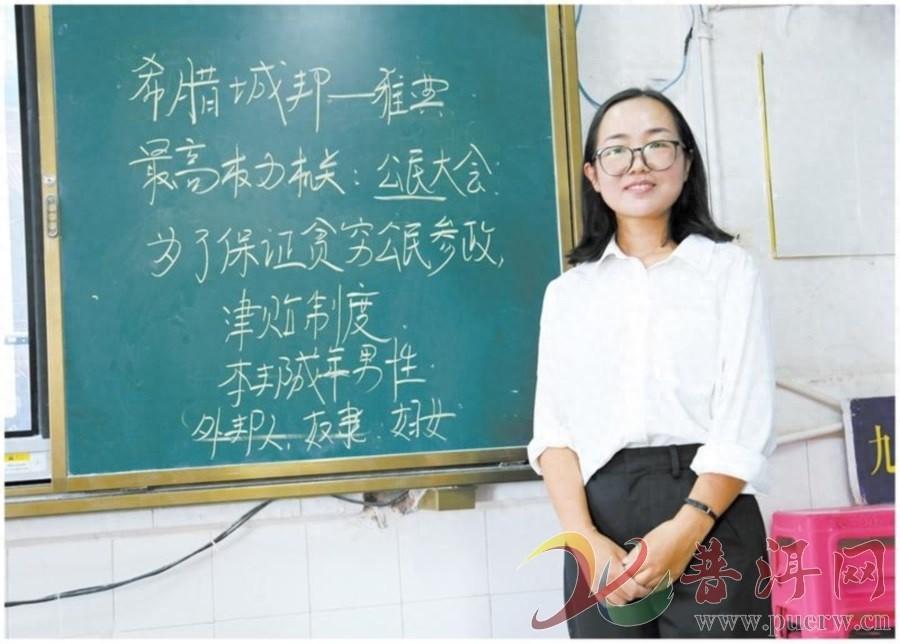 希腊城邦—雅典
最高权力机关：公民大会.
为了保证贫穷公民参政,
津贴制度.
本邦成年男性.
外邦人,奴隶.妇女
九
普洱网
www.puerw.cn